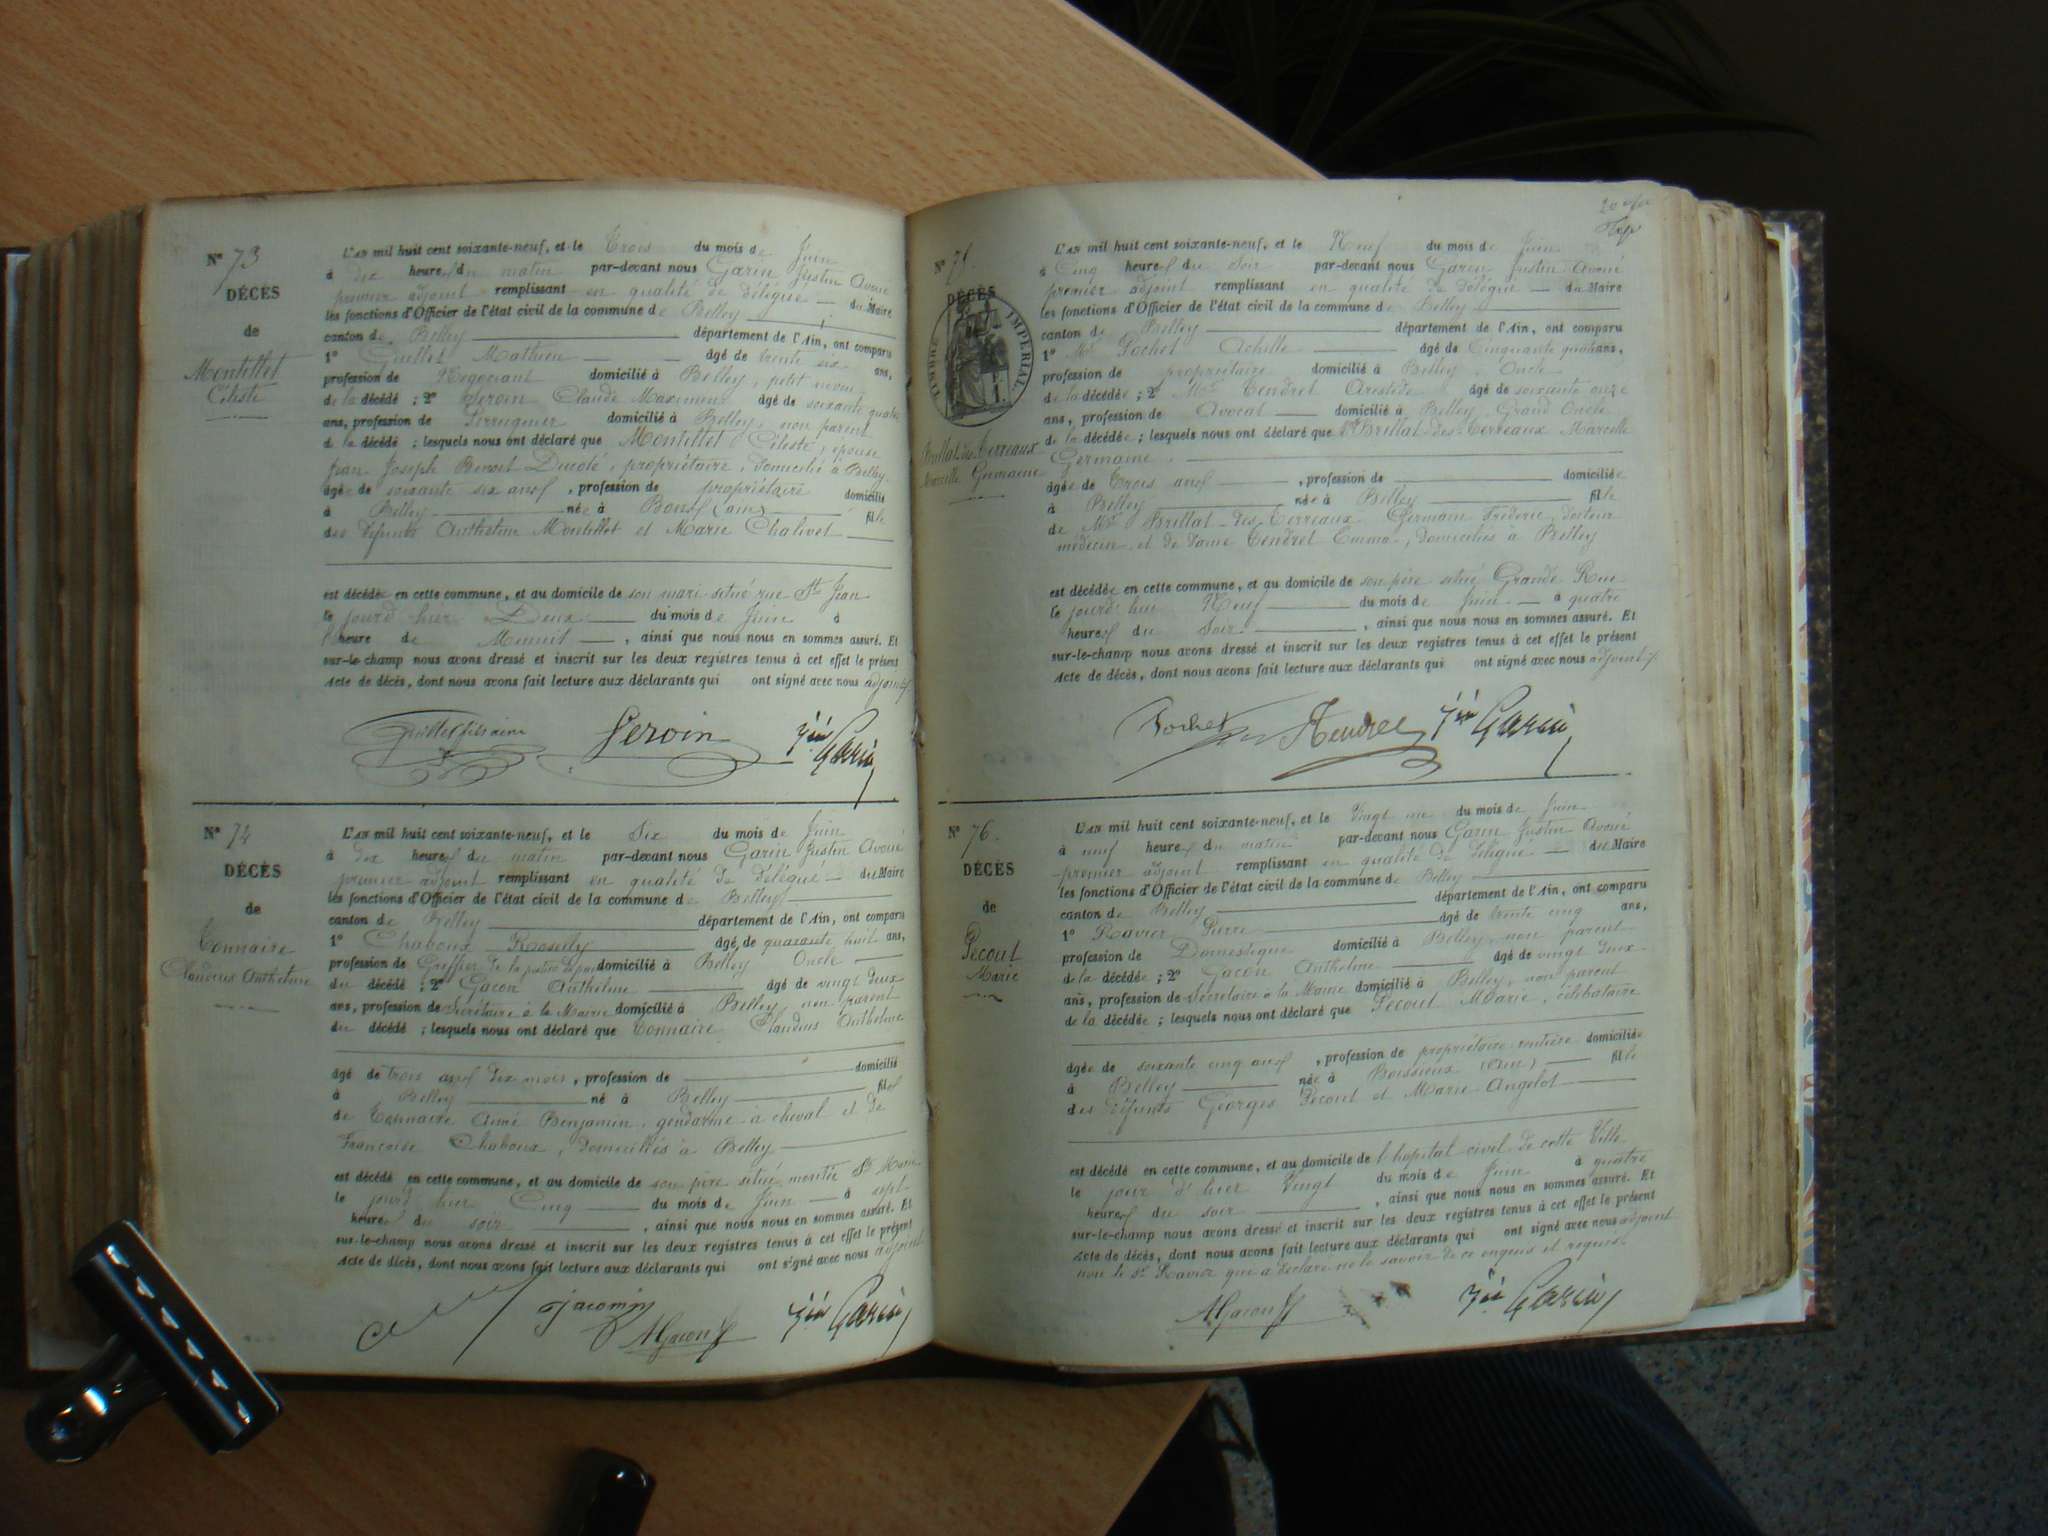 N° 73
DÉCÈS
de
Montillet
Céleste
L'AN mil huit cent soixante-neuf, et le Trois du mois de Juin
à dix heures du matin par-devant nous Garin Justin Avoué
premier adjoint remplissant en qualité de délégué du Maire
les fonctions d'Officier de l'état civil de la commune de Belley
canton de Belley département de l'Ain, ont comparu
1° Guillot Mathieu âgé de trente six ans,
profession de Négociant domicilié à Belley, petit neveu
de la décédé ; 2° Claude Maximin âgé de soixante quatre
ans, profession de Perruquier domicilié à Belley, non parent
de la décédé ; lesquels nous ont déclaré que Montillet Céleste, épouse
Jean Joseph Benoit Ducoté, propriétaire, domicilié à Belley
âgée de soixante six ans, profession de propriétaire domicilié
à Belley née à Bons (ain) fille
des défunts Anthelme Montillet et Marie Chalivet
est décédée en cette commune, et au domicile de son mari situé rue St Jean
le jourd'hier Deux du mois de Juin à
l'heure de Minuit, ainsi que nous nous en sommes assuré. Et
sur-le-champ nous avons dressé et inscrit sur les deux registres tenus à cet effet le présent
Acte de décès, dont nous avons fait lecture aux déclarants qui ont signé avec nous adjoint
Garin
N° 74
DÉCÈS
de
Connaire
Claudius Anthelme
L'AN mil huit cent soixante-neuf, et le Six du mois de Juin
à dix heures du matin par-devant nous Garin Justin Avoué
premier adjoint remplissant en qualité de délégué du Maire
les fonctions d'Officier de l'état civil de la commune de Belley
canton de Belley département de l'Ain, ont comparu
1° Chaboux âgé de quarante huit ans,
profession de Greffier de la justice de paix domicilié à Belley Oncle
du décédé ; 2° Gacon Anthelme âgé de vingt deux
ans, profession de Secrétaire à la Mairie domicilié à Belley, non parent
du décédé ; lesquels nous ont déclaré que Connaire Claudius Anthelme
âgé de trois ans dix mois, profession de domicilié
à Belley né à Belley fils
de Connaire Aimé Benjamin, gendarme à cheval et de
Françoise Chaboux, domiciliés à Belley
est décédé en cette commune, et au domicile de son père situé montée St
le jourd'hier Cinq du mois de Juin à sept
heures du soir, ainsi que nous nous en sommes assuré. Et
sur-le-champ nous avons dressé et inscrit sur les deux registres tenus à cet effet le présent
Acte de décès, dont nous avons fait lecture aux déclarants qui ont signé avec nous adjoint
AGacon Garin
N° 75.
DÉCÈS
TIMBRE IMPERIAL
Brillat-des-Terreaux
Marcelle Germaine
L'AN mil huit cent soixante-neuf, et le Neuf du mois de Juin
à Cinq heures du Soir par-devant nous Garin Justin Avoué
premier adjoint remplissant en qualité de délégué du Maire
les fonctions d'Officier de l'état civil de la commune de Belley
canton de Belley département de l'Ain, ont comparu
1° Mr Pochet Achille âgé de Cinquante quatre ans,
profession de propriétaire domicilié à Belley, Oncle
de la décédée ; 2° Mr Tendret Aristide âgé de soixante onze
ans, profession de Avocat domicilié à Belley, Grand Oncle
de la décédée ; lesquels nous ont déclaré que Brillat-des-Terreaux Marcelle
Germaine
âgée de Trois ans, profession de domiciliée
à Belley née à Belley fille
de Mr Brillat-des-Terreaux Germain Frédéric, docteur
médecin et de dame Tendret Emma, domiciliés à Belley
est décédée en cette commune, et au domicile de son père situé Grande Rue
le jourd'hui Neuf du mois de Juin à quatre
heures du Soir, ainsi que nous nous en sommes assuré. Et
sur-le-champ nous avons dressé et inscrit sur les deux registres tenus à cet effet le présent
Acte de décès, dont nous avons fait lecture aux déclarants qui ont signé avec nous adjoint
Pochet Tendret Garin
N° 76.
DÉCÈS
de
Pécout
Marie
L'AN mil huit cent soixante-neuf, et le Vingt un du mois de Juin
à neuf heures du matin par-devant nous Garin Justin Avoué
premier adjoint remplissant en qualité de délégué du Maire
les fonctions d'Officier de l'état civil de la commune de Belley
canton de Belley département de l'Ain, ont comparu
1° Ravier Pierre âgé de trente cinq ans,
profession de Domestique domicilié à Belley, non parent
de la décédée ; 2° Gacon Anthelme âgé de vingt deux
ans, profession de Secrétaire à la Mairie domicilié à Belley, non parent
de la décédée ; lesquels nous ont déclaré que Pécout Marie, célibataire
âgée de soixante cinq ans, profession de propriétaire rentière domiciliée
à Belley née à (Ain) fille
des défunts Georges Pécout et Marie Angelot
est décédé en cette commune, et au domicile de l'hopital civil de cette Ville
le jour d'hier Vingt du mois de Juin à quatre
heures du soir, ainsi que nous nous en sommes assuré. Et
sur-le-champ nous avons dressé et inscrit sur les deux registres tenus à cet effet le présent
Acte de décès, dont nous avons fait lecture aux déclarants qui ont signé avec nous adjoint
non le Sr Ravier qui a déclaré ne le savoir de ce enquis et requis.
AGacon Garin